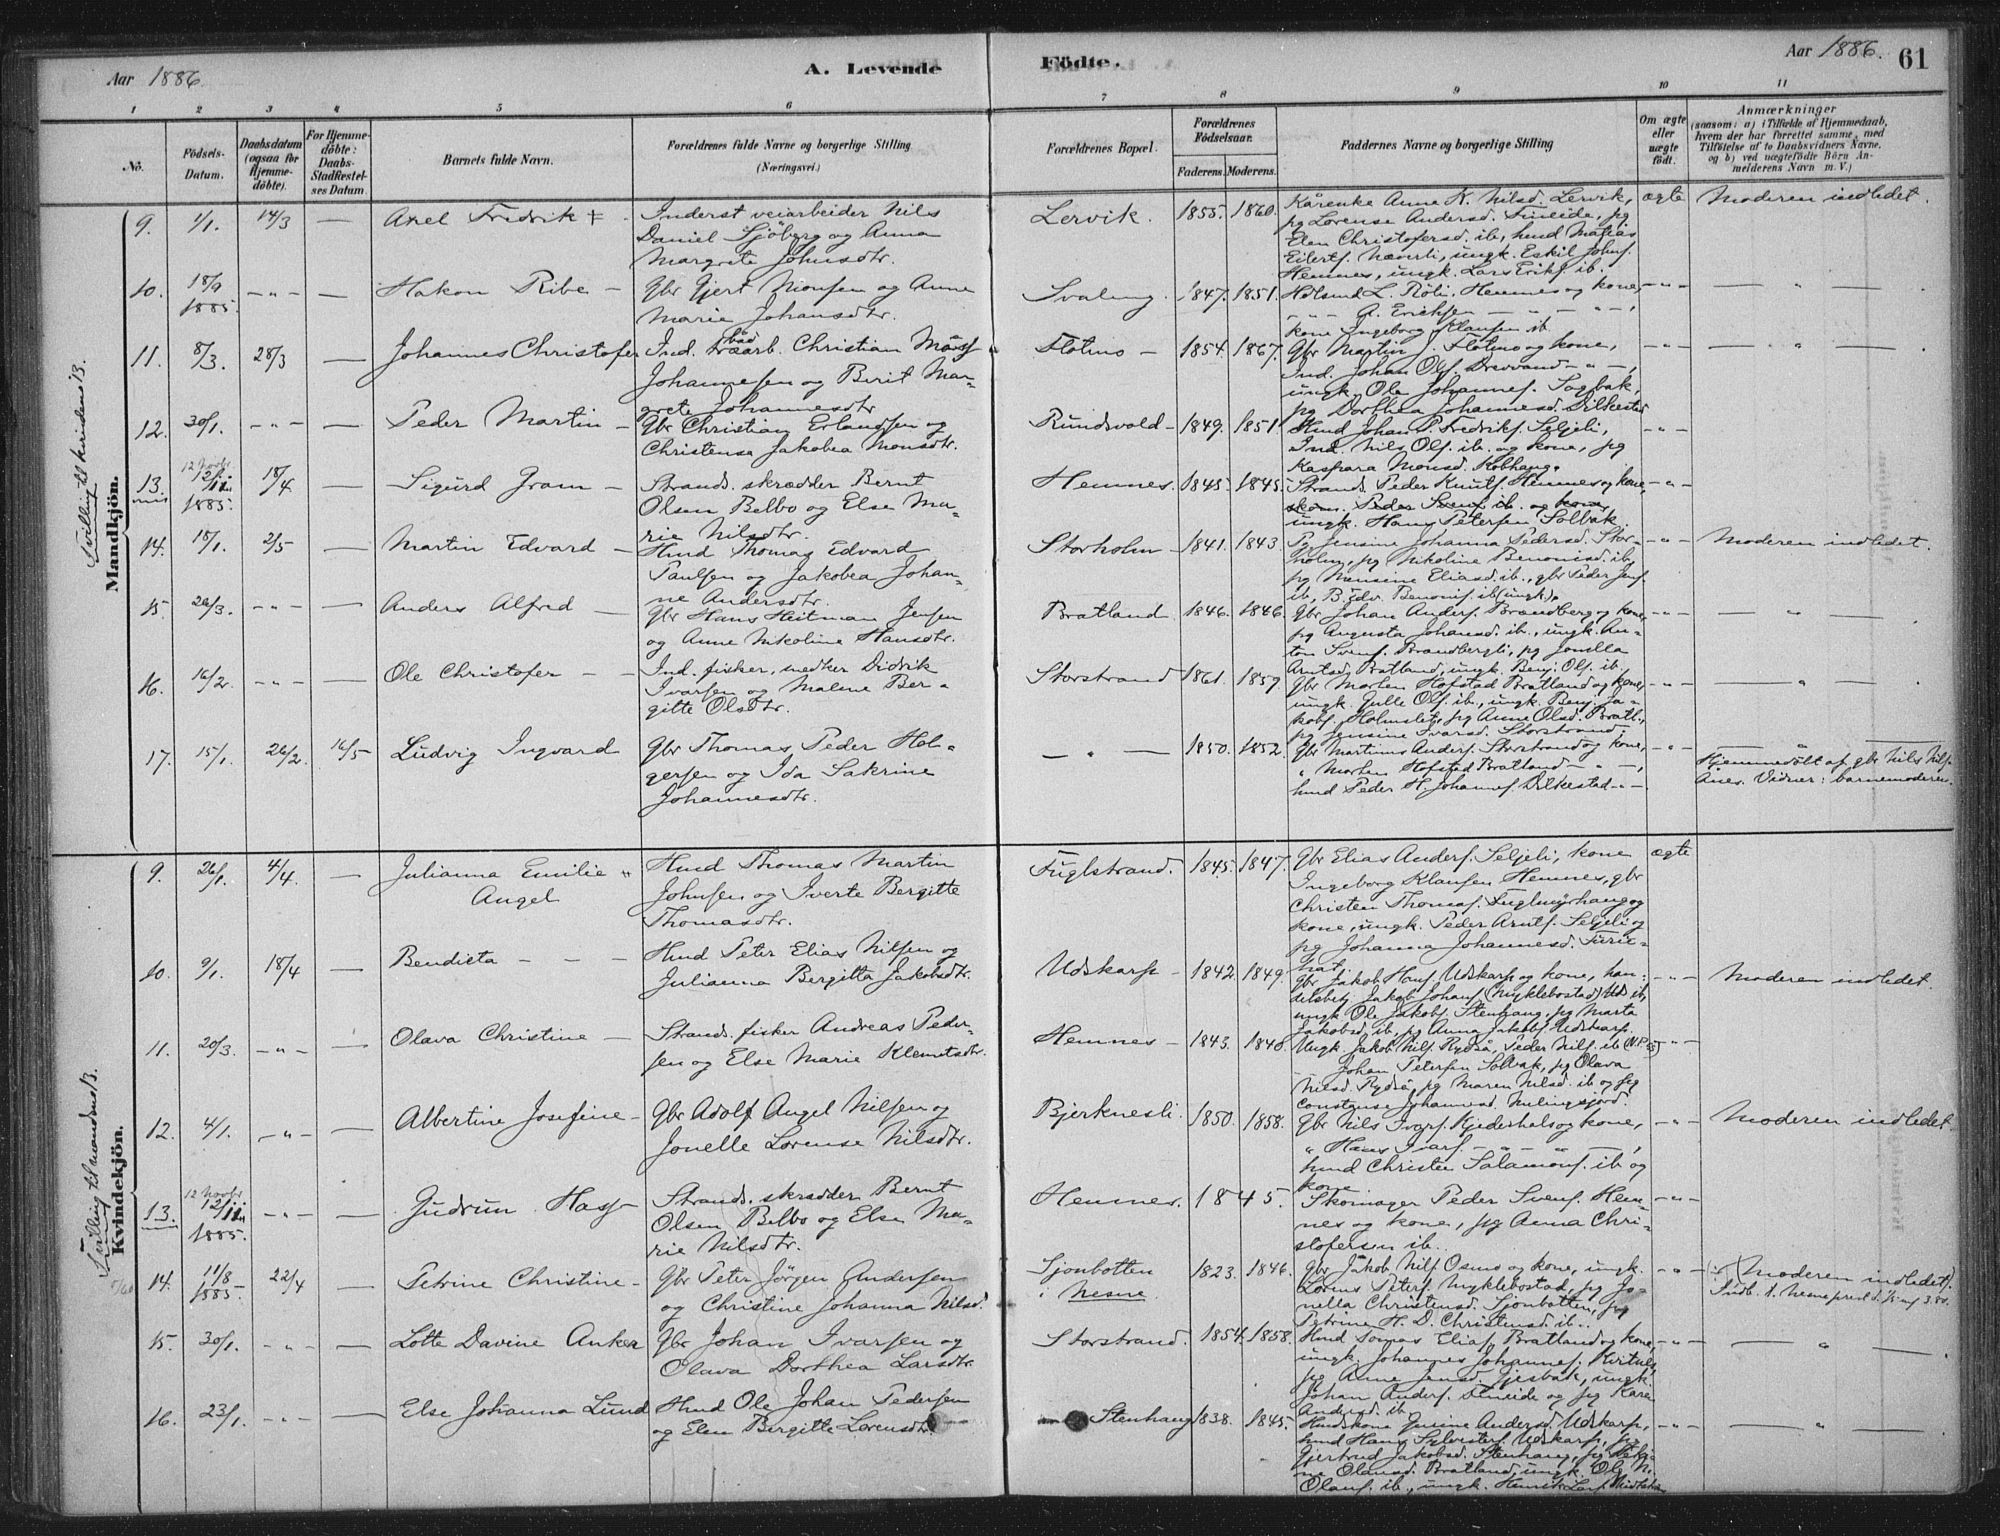 Aar 1886.
A. Levende
Födte.
Aar 1886.
61
1 2 3 4 5 6 7 8 9 10 11
No.
Födsels-
Datum.
Daabsdatum
(ogsaa for
Hjemme-
döbte).
For Hjemme-
döbte:
Daabs-
Stadfæstel-
ses Datum.
Barnets fulde Navn.
Forældrenes fulde Navne og borgerlige Stilling
(Næringsvei.)
Forældrenes Bopæl.
Forældrenes
Födselsaar.
Faderens. Moderens.
Faddernes Navne og borgerlige Stilling
Om ægte
eller
uægte
födt.
Anmærkninger
(saasom: a) i Tilfælde af Hjemmedaab,
hvem der har forrettet samme, med
Tilföielse af to Daabsvidners Navne,
og b) ved uægtefödte Börn An-
melderens Navn m. V.)
Mandkjön.
9. 1/1. 14/3 — Axel Fredrik
Inderst veiarbeider Nils
Daniel Sjöberg og Anna
Margrete Johnsdtr.
Lervik. 1855. 1860.
Kårenke Anne K. Nilsd. Lervik,
pg Lorense Andersd. Fineide, pg
Elen Christofersd. ib., husd Matias
Eilertf. Næverli, ungk. Eskil Johnf.
Hemnes, ungk. Lars Erikf. ib.
ægte
Moderen indledet.
10. 18/9 1885. — " — — Hakon Ribe —
Gbr Gjert Monsen og Anne
Marie Johansdtr.
Svaleng. 1847. 1851.
Hemnes og kone,
" " A. Erichsen — " — " —,
kone Ingeborg Klausen ib.
— " —
— " —
11. 8/3. 28/3 — Johannes Christofer
Ind. bådtræarb. Christian
Johannesen og Berit Mar-
grete Johannesdtr
Flötmo — 1854. 1867.
Gbr Martin J. Flotmo og kone,
Ind. Johan Olf. Drevvand — " —,
ungk. Ole Johannesf. Sagbak,
pg Dorthea Johannesd. Dilkestad
— " —
12. 30/1. — " — — Peder Martin —
Gbr Christian Erlandsen og
Christense Jakobea Monsdtr.
Rundsvold — 1849. 1851.
Husd Johan P. Fredrikf. Seljeli,
Ind. Nils Olf. ib. og kone, pg
Kaspara Monsd. Kobhaug.
— " —
Tvilling til kvindens 13.
13. 12 Novbr 12/11 1885. 18/4 — Sigurd Gram —
Strands. skrædder Bernt
Olsen Belbo og Else Ma-
rie Nilsdtr.
Hemnes. 1845. 1845.
Strands. Peder Knutf. Hemnes og kone,
skom. Peder Svenf. ib. og kone
ungk. Hans Petersen Solbak.
— " —
14. 18/1. 2/5 — Martin Edvard —
Husd Thomas Edvard
Paulsen og Jakobea Johan-
ne Andersdtr.
Storholm — 1841. 1843
Pg Jensine Johanna Pedersd. Stor-
holm, pg Nikoline Benonisd. ib.,
pg Monsine Eliasd. ib., gbr Peder Jenf.
ib, B. Edv. Benonif. ib (ungk).
— " —
Moderen indledet.
15. 26/3. — " — — Anders Alfred —
Gbr Hans Heitman Jensen
og Anne Nikoline Hansdtr.
Bratland 1846. 1846.
Gbr Johan Anderf. Brændberg og kone
pg Augusta Johansd. ib., ungk. An-
ton Svenf. Brandbergli, pg Jonilla
Arntsd. Bratland, ungk. Benj. Olf. ib.
— " —
— " —
16. 16/2. — " — — Ole Christofer —
Ind. fisker, snedker Didrik
Ivarsen og Malene Ber-
gitte Olsdtr.
Storstrand 1861. 1859.
Gbr Morten Hofstad Bratland og kone,
ungk. Julle Olf. ib., ungk. Benj. Ja-
kobf. Holmslet, pg Anne Olsd. Bratl.,
pg Jensine Ivarsd. Storstrand.
— " —
— " —
17. 15/1. 26/2. 16/5 Ludvig Ingvard
Gbr Thomas Peder Hol-
gersen og Ida Sakrine
Johannesdtr.
— " — 1850. 1852.
Gbr Martinus Anderf. Storstrand og kone,
" Morten Hofstad Bratland — " —,
husd Peder H. Johannesf. Dilkestad — " —
— " —
— " —
Hjemmedöbt af gbr Nils Nilf.
Anes. Vidner: barnemoderen.
Kvindekjön.
9. 26/1. 4/4. — Julianna Emilie
Angel
Husd Thomas Martin
Johnsen og Iverte Bergitte
Thomasdtr.
Fuglstrand. 1845. 1847.
Gbr Elias Anderf. Seljeli, kone
Ingeborg Klausen Hemnes, gbr
Christen Thomasf. Fuglmyrhaug og
kone, ungk. Peder Arntf. Seljeli og
pg Johanna Johannesd.
ægte
10. 9/1. 18/4 — Bendicta — — —
Husd Peter Elias Nilsen og
Julianna Bergitta Jakobsdtr.
Udskarp — 1842. 1849.
Gbr Jakob Hansf. Udskarp og kone, han-
delsbetj Jakob Johanf (Myklebostad) Uds ib,
ungk Ole Jakobf. Stenhaug, pg Marta
Jakobsd. ib., pg Anna Jakobsd. Udskarp.
— " —
Moderen indledet.
11. 20/3. — " — — Olava Christine —
Strands. fisker Andreas Peder-
sen og Else Marie Klemtsdtr.
Hemnes — 1843. 1840.
Ungk. Jakob Nilf. Rydså, Peder Nilf. ib
Johan Petersen Solbak, pg Olava
Nilsd. Rydså, pg Maren Nilsd. ib og pg
Constanse Johannesd.
— " —
12. 4/1. — " — — Albertine Josefine —
Gbr Adolf Angel Nilsen og
Jonelle Lorense Nilsdtr.
Bjerknesli. 1850. 1858.
Gbr Nils Ivarf. Kjederhals og kone,
" Hans Ivarf. — " — " —,
husd Christen Salamonf. ib og
kone
— " —
Moderen indledet
Tvilling til mandens 13.
13. 12 Novbr 12/11 1885. — " — — Gudrun Hasf
Strands. skrædder Bernt
Olsen Belbo og Else Ma-
rie Nilsdtr.
Hemnes. 1845.
Skomager Peder Svenf. Hem-
nes og kone, pg Anna Chri-
stofersen ib.
— " —
14. 11/8 1885. 22/4 — Petrine Christine —
Gbr Peter Jörgen Andersen
og Christine Johanna Nilsd.
Sjonbotten
i Nesne. 1823. 1846.
Gbr Jakob Nilf. Osmo og kone, ungk.
Lorens Peterf. Myklebostad, pg Jo-
nella Christensd. Sjonbotten, pg
Petrine H. D. Christensd. ib.
— " —
(Moderen indledet).
15. 30/1. — " — — Lotte Davine Anker
Gbr Johan Ivarsen og
Olava Dorthea Larsdtr.
Storstrand. 1854. 1858.
Husd Tomas Eliasf. Bratland og kone,
ungk. Johannes Johannesf. Kvitnes,
pg Anne Jensd. Gjesbak, ungk.
Johan Anderf. Fineide og pg Karen
Andersd. ib.
— " —
— " —
16. 23/1. — " — — Else Johanna Lund
Husd Ole Johan Pedersen
og Elen Bergitte Lorensdtr.
Stenhaug 1838. 1845.
Husdskone Jensine Andersd. Udskarp,
husd Hans Sylvesterf. Udskarp, pg
Gjertrud Jakobsd. Stenhaug, pg
Olausd. Bratland, ungk. Ole N.
Olausf. ib., ungk. Henrik Larf.
— " —
— " —